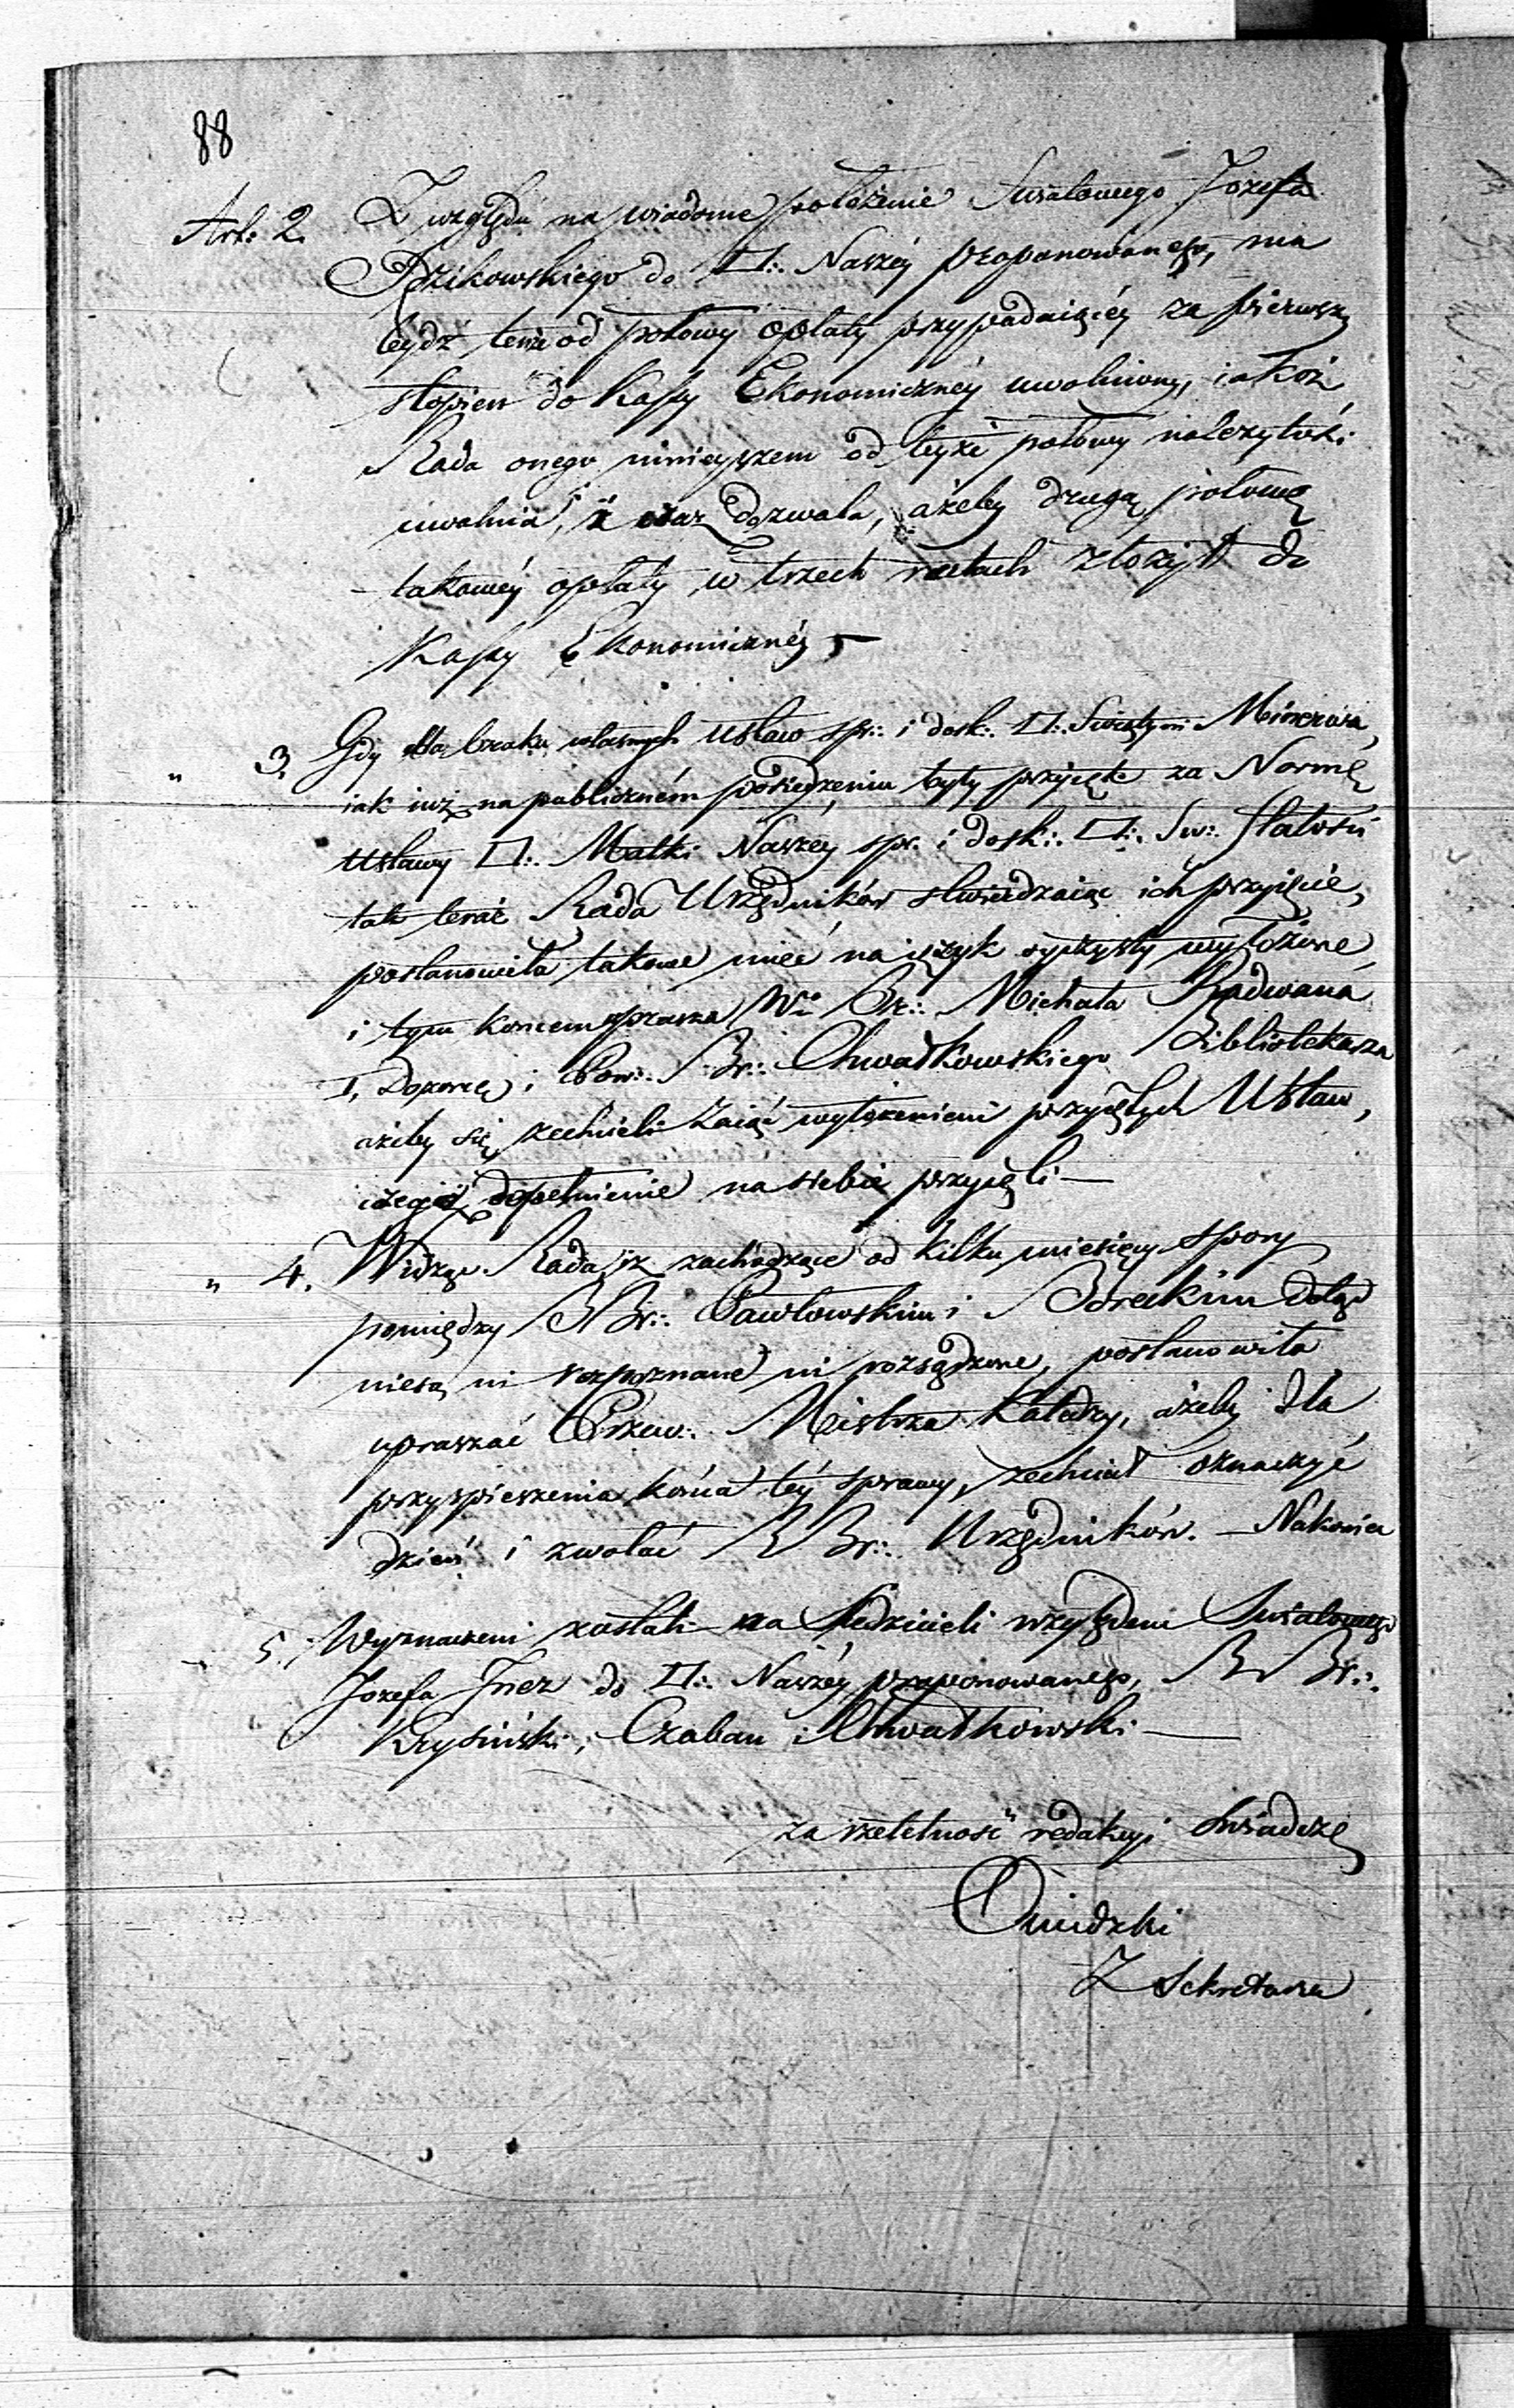 88
Art: 2. Z względu na wiadome położenie Swiatowego Jozefa
Dzikowskiego do □∴ Naszéy proponowanego, ma
bydź tenże od połowy opłaty przypadaiącéy za pierwszy
stopień do Kassy Ekonomicznéy uwolniony, iakoż
Rada onego ninieyszem od teyże połowy należytości
uwalnia, i oraz dozwala, ażeby drugą połowę
takowéy opłaty w trzech ratach złożył do
Kassy Ekonomicznéy —
" 3. Gdy dla braku własnych Ustaw spr∴ i dosk∴ □∴ Swiątyni Minerwy,
iak iuż na publiczném posiedzeniu były przyięte za Normę
Ustawy □∴ Matki Naszéy spr. i dosk∴ □∴ Sw∴ Stałości
tak teraz Rada Urzędników stwierdzaiąc ich przyięcie,
postanowiła takowe mieć na ięzyk oyczysty wyłożone,
i tym końcem uprasza Br∴ Michała Radwana
I, Dozorcę i Pow∴ Br∴ Chwatkowskiego Bibliotekarza
ażeby się zechcieli zaiąć wyłożeniem przyiętych Ustaw,
czego dopełnienie na siebie przyięli —
" 4. Widząc Rada iż zachodzące od kilku miesięcy spory
pomiędzy BBr∴ Pawłowskim i Boreckim dotąd
niesą ni rozpoznane ni rozsądzone, postanowiła
upraszać Przew∴ Mistrza Katedry, ażeby dla
przyspieszenia końca téy sprawy, zechciał oznaczyć
dzień i zwołać BBr∴ Urzędników. — Nakoniec
5. Wyznaczeni zostali na Sledzicieli względem Swiatowego
Jozefa do □∴ Naszéy proponowanego, BBr∴
Krysiński, Czaban i Chwatkowski —
za rzetelność redakcyi swiadczę
Z Sekretarza